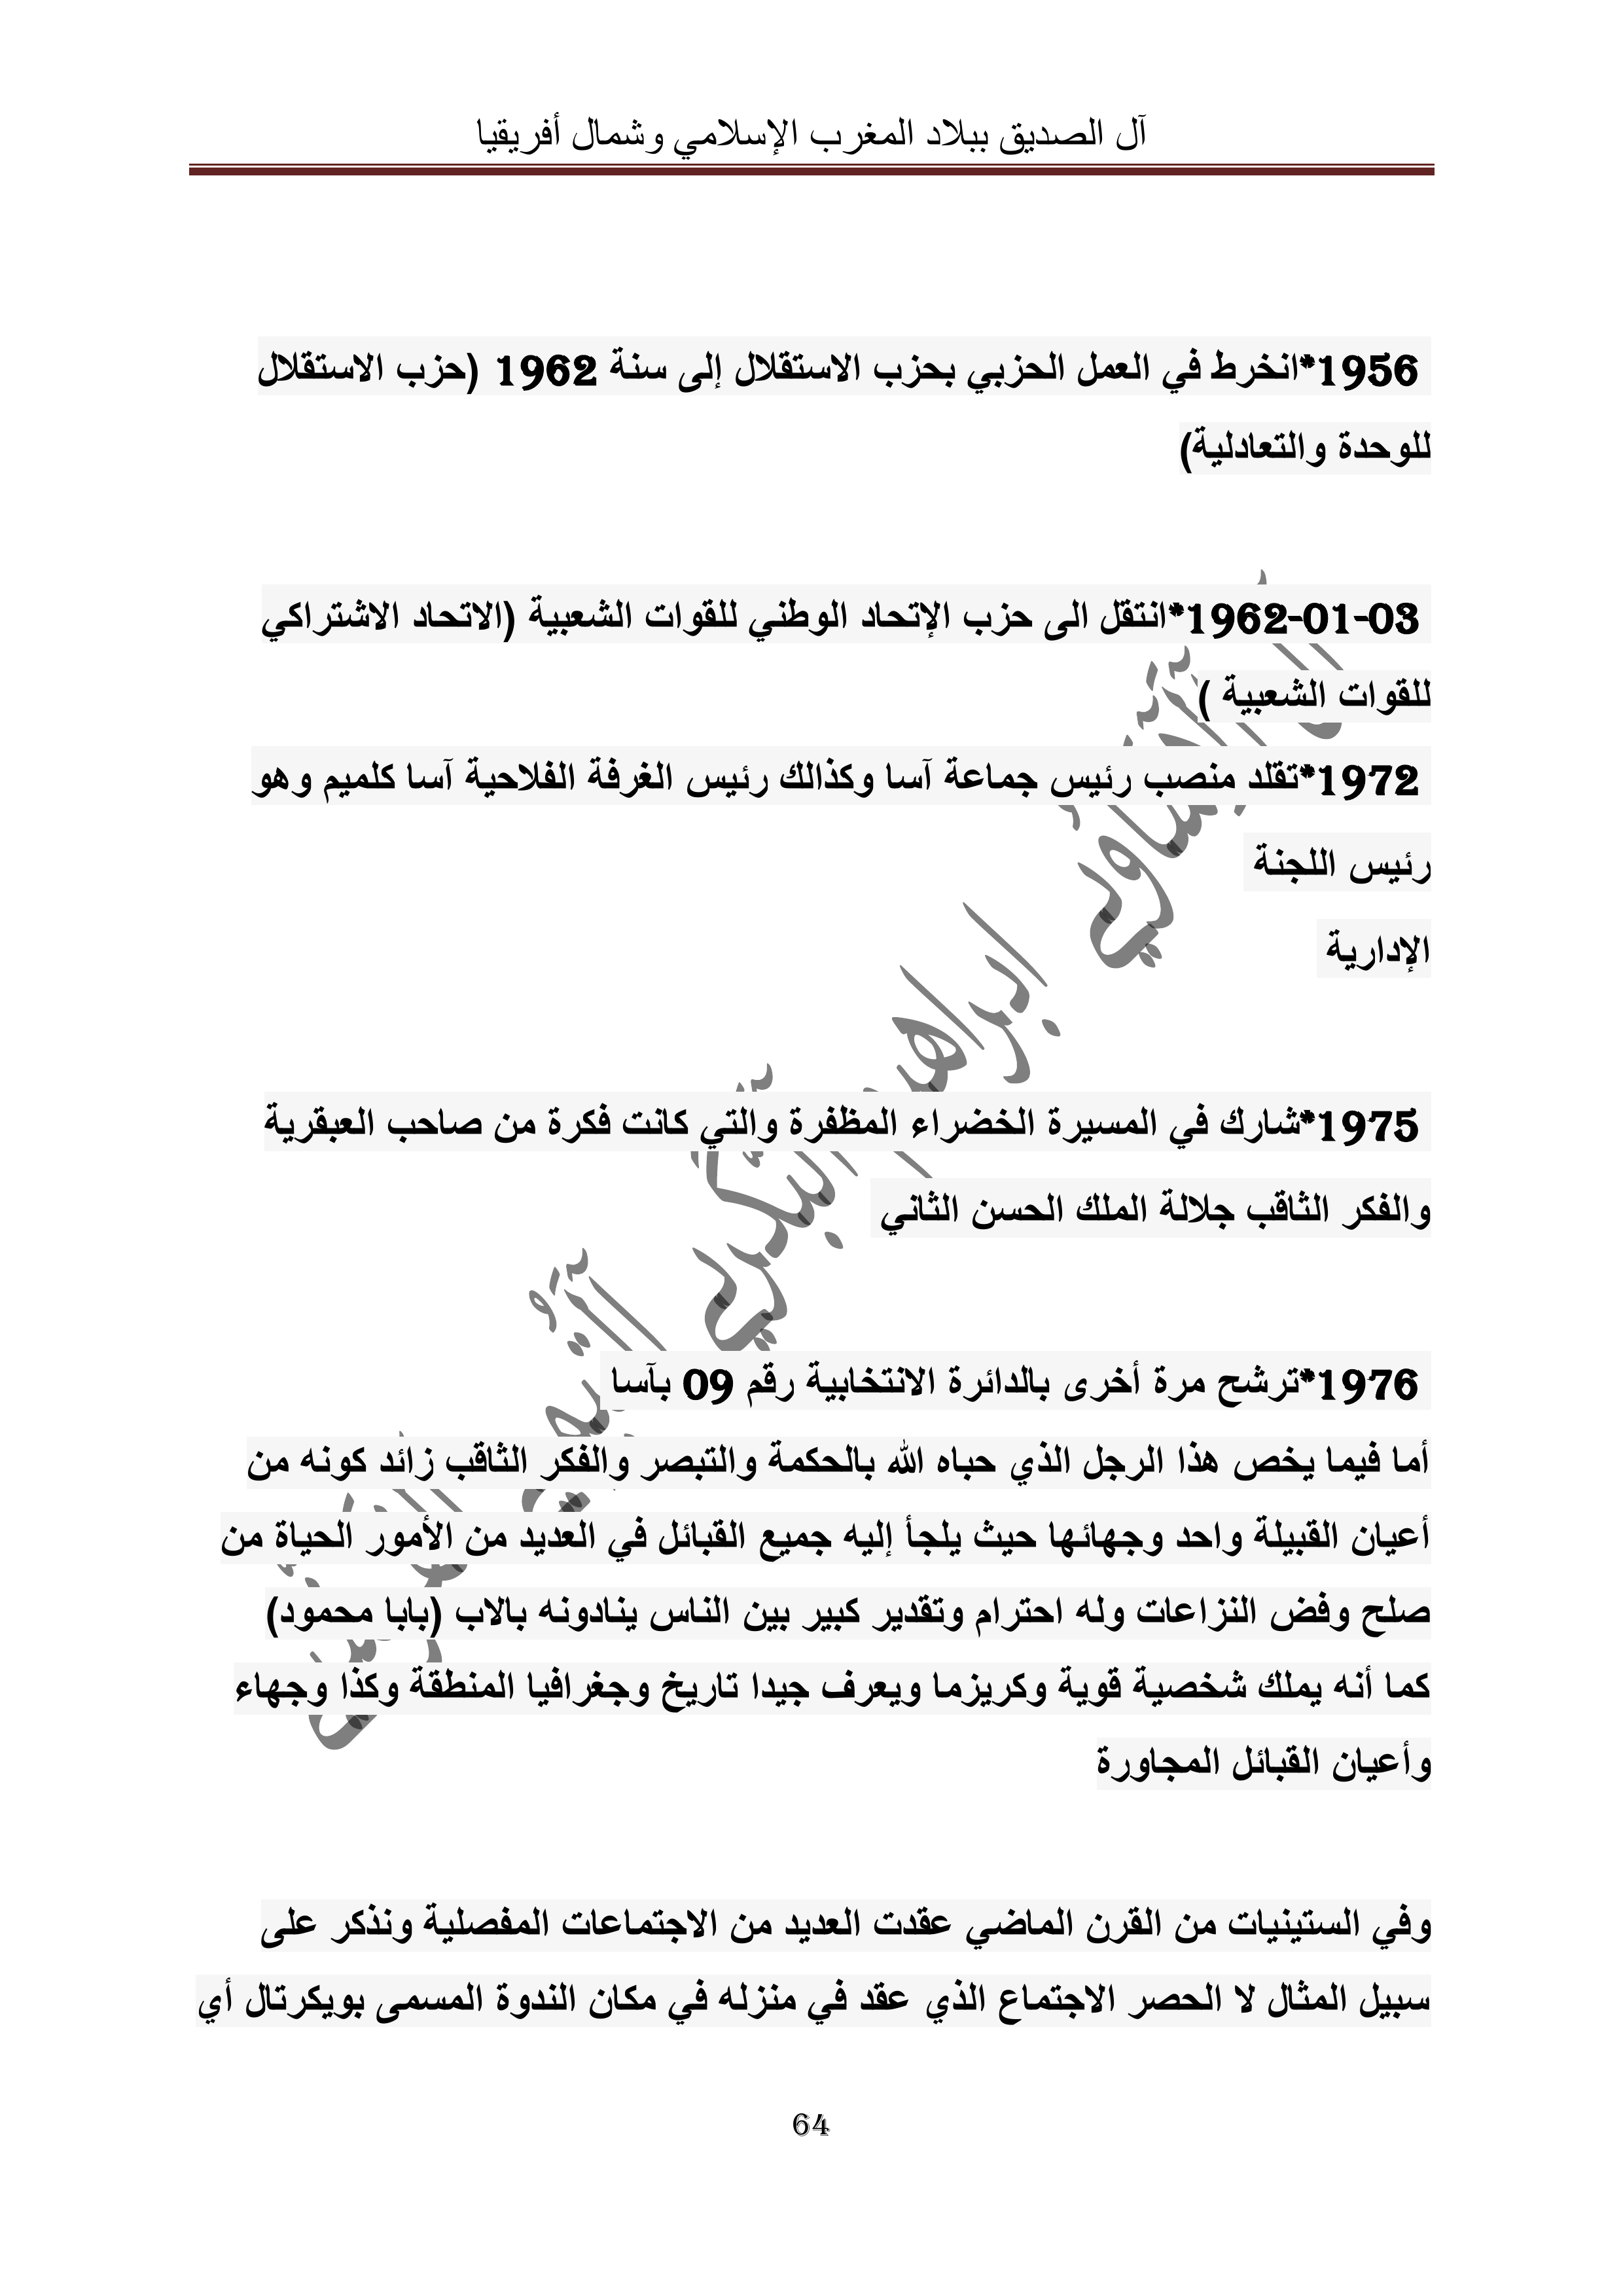 آل الصديق ببلاد المغرب الإسلامي وشمال أفريقيا
1956*انخرط في العمل الحزبي بحزب الاستقلال إلى سنة 1962 (حزب الاستقلال
للوحدة والتعادلية)
1962-01-03*انتقل الى حزب الإتحاد الوطني للقوات الشعبية (الاتحاد الاشتراكي
للقوات الشعبية )
1972*تقلد منصب رئيس جماعة آسا وكذالك رئيس الغرفة الفلاحية آسا كلميم وهو
رئيس اللجنة
الإدارية
1975*شارك في المسيرة الخضراء المظفرة والتي كانت فكرة من صاحب العبقرية
والفكر الثاقب جلالة الملك الحسن الثاني
1976*ترشح مرة أخرى بالدائرة الانتخابية رقم 09 بآسا
أما فيما يخص هذا الرجل الذي حباه الله بالحكمة والتبصر والفكر الثاقب زائد كونه من
أعيان القبيلة واحد وجهائها حيث يلجأ إليه جميع القبائل في العديد من الأمور الحياة من
صلح وفض النزاعات وله احترام وتقدير كبير بين الناس ينادونه بالاب (بابا محمود)
كما أنه يملك شخصية قوية وكريزما ويعرف جيدا تاريخ وجغرافيا المنطقة وكذا وجهاء
وأعيان القبائل المجاورة
وفي الستينيات من القرن الماضي عقدت العديد من الاجتماعات المفصلية ونذكر على
سبيل المثال لا الحصر الاجتماع الذي عقد في منزله في مكان الندوة المسمى بويكرتال أي
64